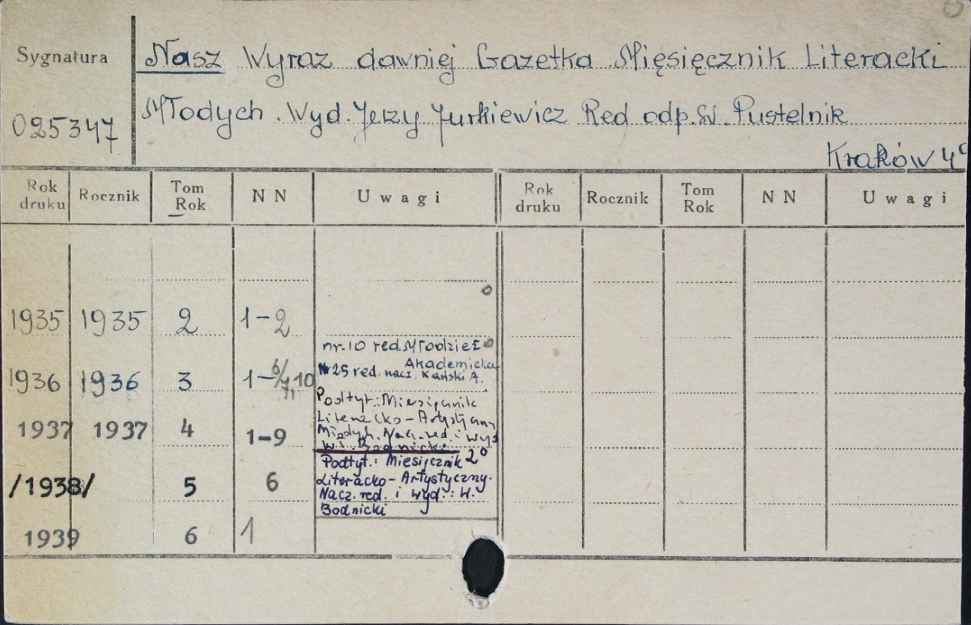 Sygnatura
Nasz Wyraz dawniej Gazetka Miesięcznik Literacki
Młodych. Wyd. Jerzy Jurkiewicz Red odp. Pustelnik
025347
Kraków 4°
Rok druku Rocznik Tom Rok NN Uwagi Rok druku Rocznik Tom Rok NN Uwagi
1935 1935 2 1-2
nr. 10 red. Młodzież
Akademicka
25 red. nacz. A.
1936 1936 3 1-6/7, 10
Podtyt: Miesięcznik
Literacko-Artystyczny
Młodych. Nacz. red. i wyd.
W. Bodnicki
1937 1937 4 1-9
Podtyt.: Miesięcznik 2°
Literacko-Artystyczny.
Nacz. red. i wyd.: W.
Bodnicki
/1938/ 5 6
1939 6 1